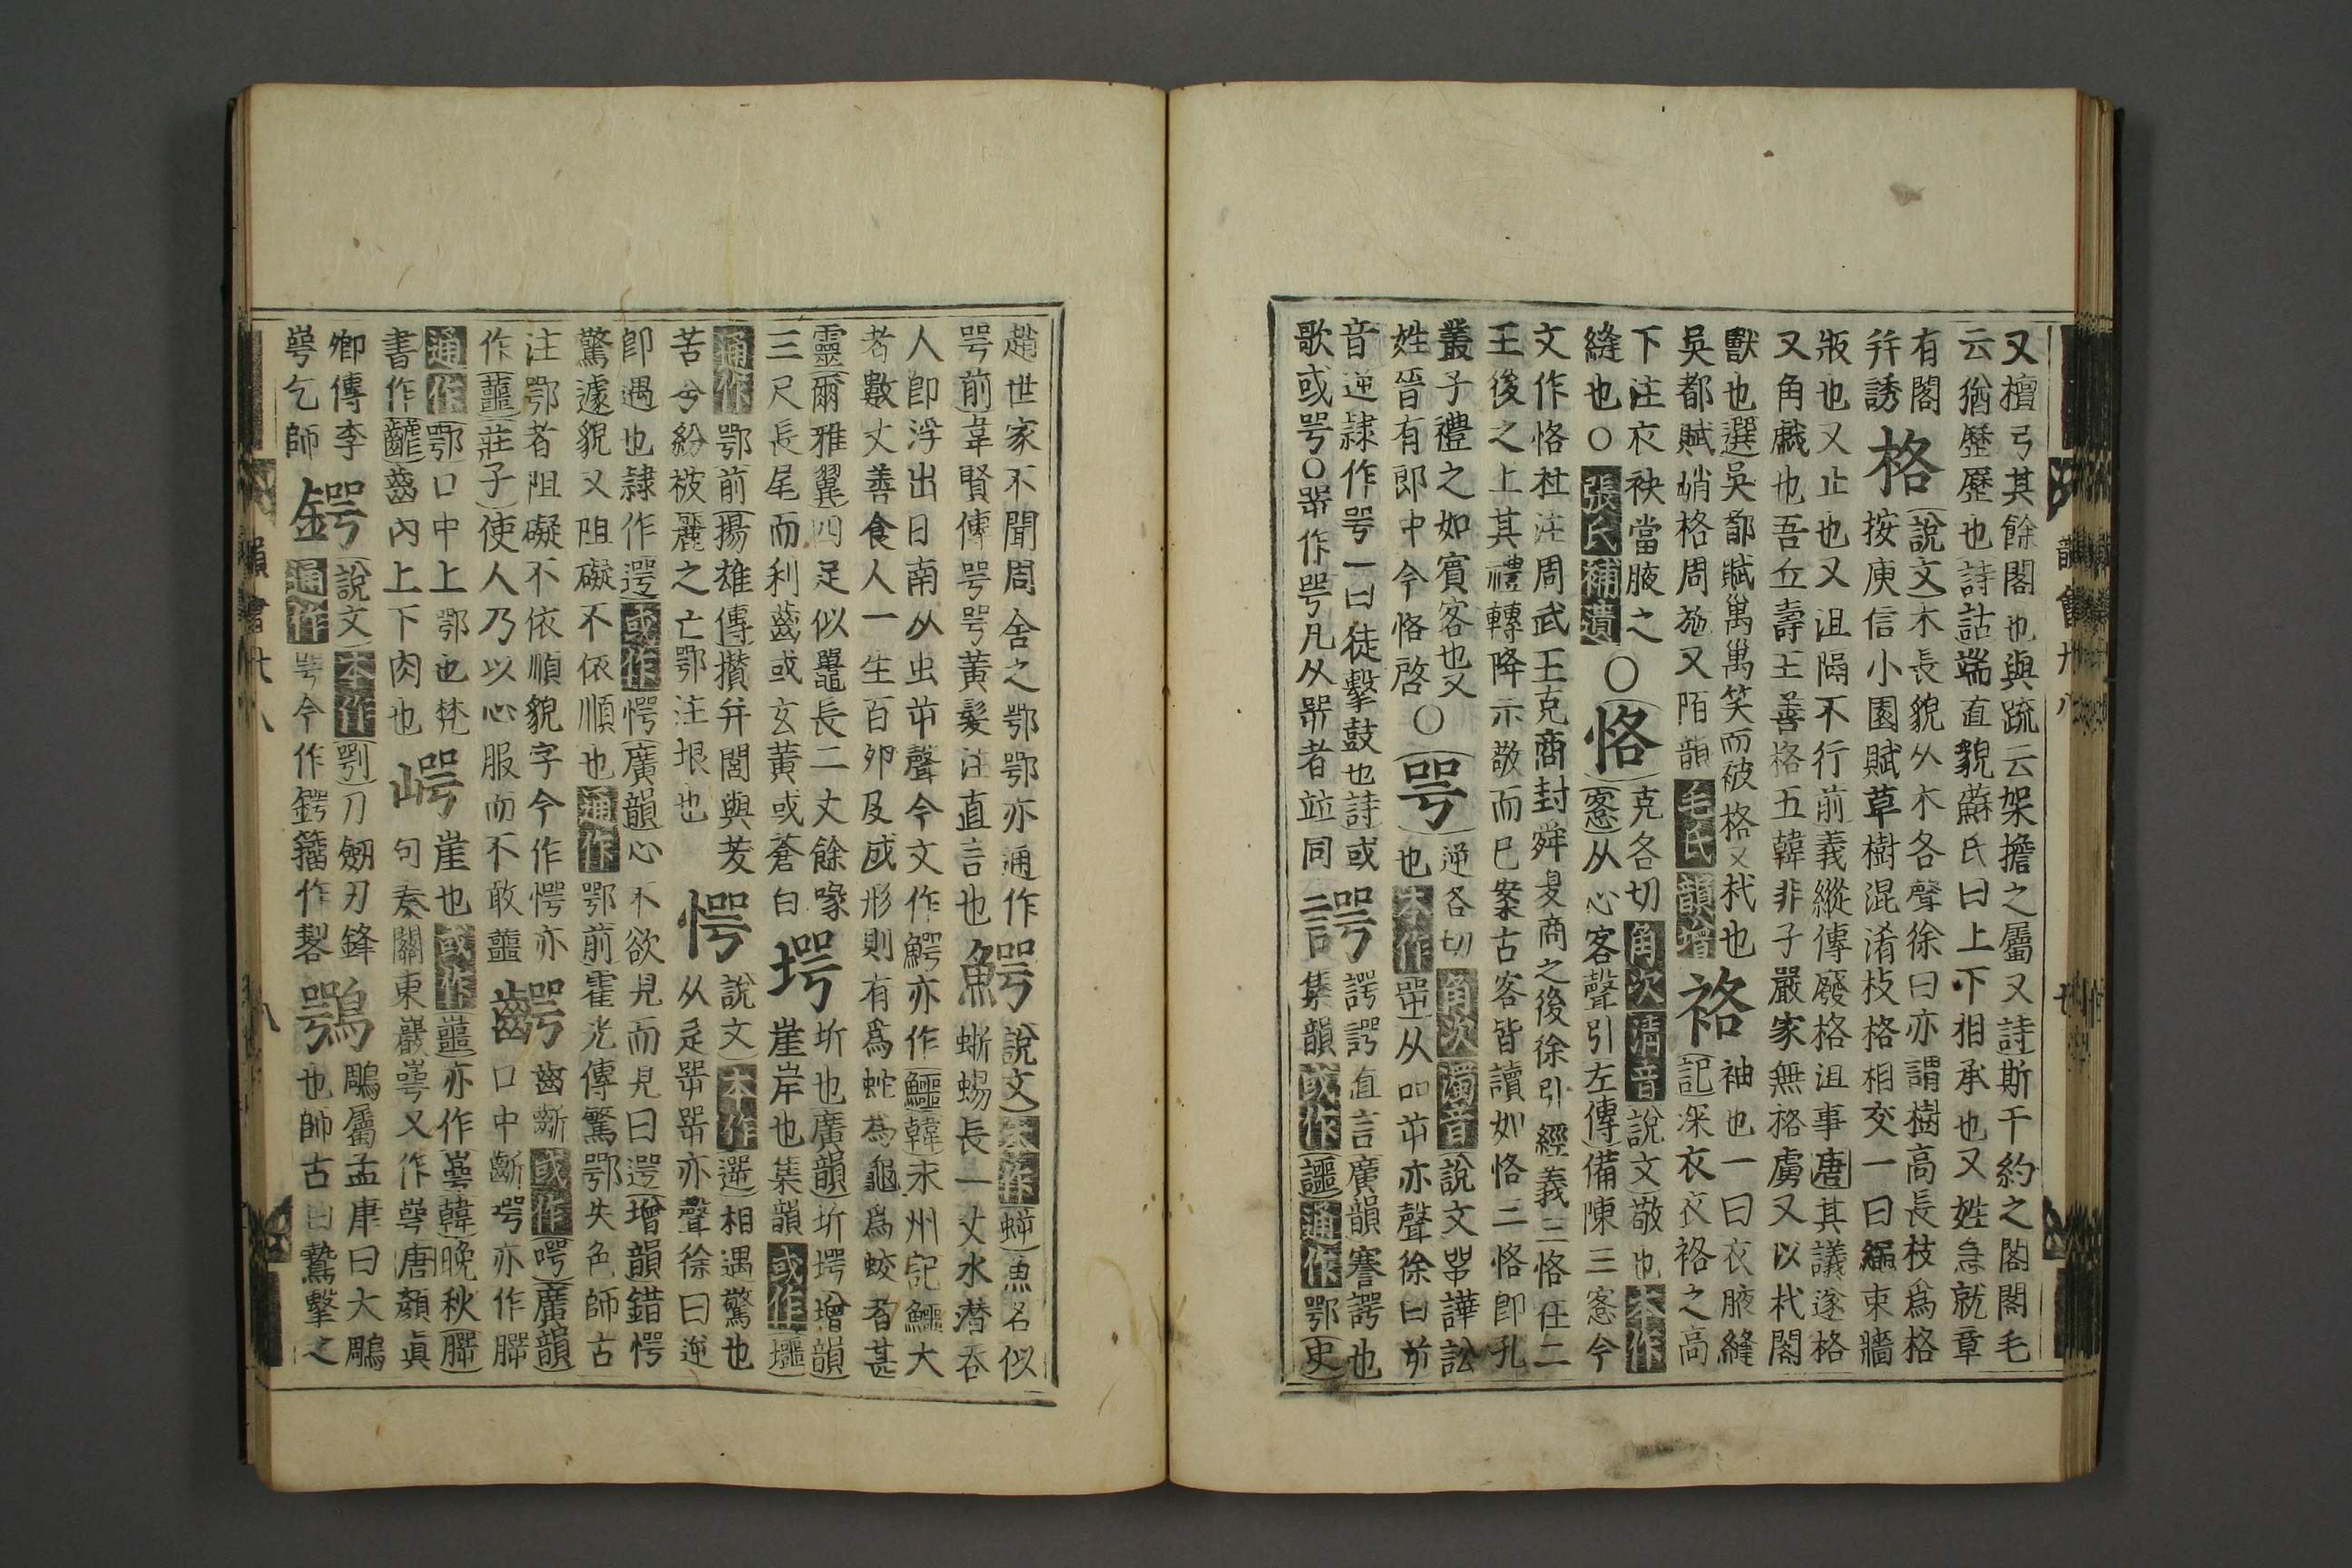 又檀弓其餘閣也與䟽云架擔之屬又詩斯干約之閣閣毛
云猶歷歷也詩詁端直貌蘇氏曰上下相承也又姓急就章
有閣
幷誘
格
說文木長貌从木各聲徐曰亦謂樹高長枝爲格
按庾信小園賦草樹混淆枝格相交一曰縮束牆
版也又止也又沮隔不行前義縱傳廢格沮事唐其議遂格
又角戲也吾丘壽王善格五韓非子嚴家無格虜又以杙閣
獸也選吳都賦萬萬笑而被格又杙也
吳都賦峭格周施又陌韻毛氏韻增
袼
袖也一曰衣腋縫
記深衣衣袼之高
下注衣袂當腋之
縫也○張氏補遺
○恪
克各切角次淸音說文敬也本作
愙从心客聲引左傳備陳三愙今
文作恪杜注周武王克商封舜夏商之後徐引經義三恪在二
王後之上其禮轉降示敬而已案古客皆讀如恪二恪卽孔
叢子禮之如賓客也又
姓晉有郞中令恪啓
○咢
逆各切角次濁音說文咢譁訟
也本作㖾从吅屰亦聲徐曰屰
音逆隷作咢一曰徒擊鼓也詩或
歌或咢○㖾作咢凡从㖾者竝同
諤
諤諤直言廣韻謇諤也
集韻或作讍通作鄂史
趙世家不聞周舍之鄂鄂亦通作
咢前韋賢傳咢咢黃髮注直言也
鰐
說文本作蝷魚名似
蜥蜴長一丈水潛呑
人卽浮出日南从虫屰聲今文作鰐亦作鱷韓朱州記鱷大
者數丈善食人一生百卵及成形則有爲蛇爲龜爲蛟者甚
靈爾雅翼四足似鼉長二丈餘喙
三尺長尾而利齒或玄黃或蒼白
堮
圻也廣韻圻堮增韻
崖岸也集韻或作壥
通作鄂前揚雄傳攢幷閭與茇
苦兮紛被麗之亡鄂注垠也
愕
說文本作遻相遇驚也
从辵㖾㖾亦聲徐曰逆
卽遇也隷作遌或作愕廣韻心不欲見而見曰遌增韻錯愕
驚遽貌又阻礙不依順也通作鄂前霍光傳驚鄂失色師古
注鄂者阻礙不依順貌字今作愕亦
作蘁莊子使人乃以心服而不敢蘁
齶
齒齗或作㗁廣韻
口中齗堮亦作腭
通作鄂口中上鄂也梵
書作齶齒內上下肉也
崿
崖也或作㠋亦作崿韓晩秋腭
句秦關東巖崿又作崿唐顏眞
卿傳李
萼乞師
鍔
說文本作剠刀劒刃鋒
通作咢今作鍔籒作㓵
鶚
鵰屬孟康曰大鵰
也師古曰鷙擊之